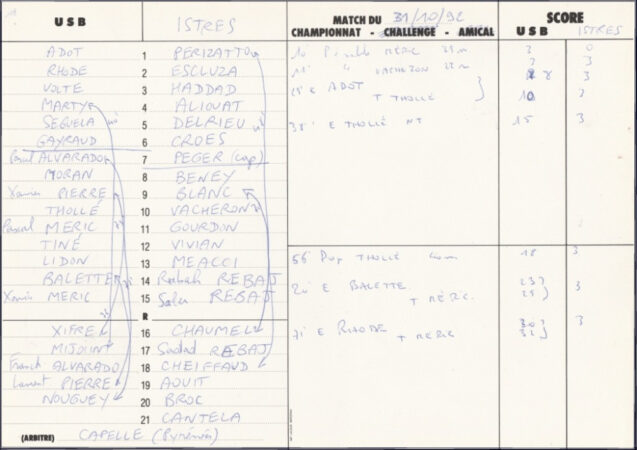 USB ISTRES
ADOT 1 PERIZATTO
RHODE 2 ESCLUZA
VOLTE 3 HADDAD
MARTY 4 ALIOUAT
SEGUELA 5 DELRIEU
GAYRAUD 6 CROES
Pascal ALVARADO 7 PEGER (cap)
MORAN 8 BENEY
Xavier PIERRE 9 BLANC
THOLLÉ 10 VACHERON
Pascal MERIC 11 GOURDON
TINÉ 12 VIVIAN
LIDON 13 MEACCI
BALETTE 14 Rabah REBAJ
Xavier MERIC 15 Salem REBAJ
R
XIFRE 16 CHAUMEL
MIJOINT 17 Saadad REBAJ
Franck ALVARADO 18 CHEIFFAUD
Laurent PIERRE 19 AOUIT
NOUGUEY 20 BROC
21 CANTELA
(ARBITRE) CAPELLE (Pyrénées)
MATCH DU 31/10/92
CHAMPIONNAT - CHALLENGE - AMICAL
SCORE
USB ISTRES
MERIC 3 0
VACHERON 22 m 3 3
E ADOT 8 3
T THOLLÉ 10 3
38' E THOLLÉ NT 15 3
56 THOLLÉ 18 3
E BALETTE 23
T MÉRIC 25 3
71' E RHODE 30 3
T MÉRIC 32